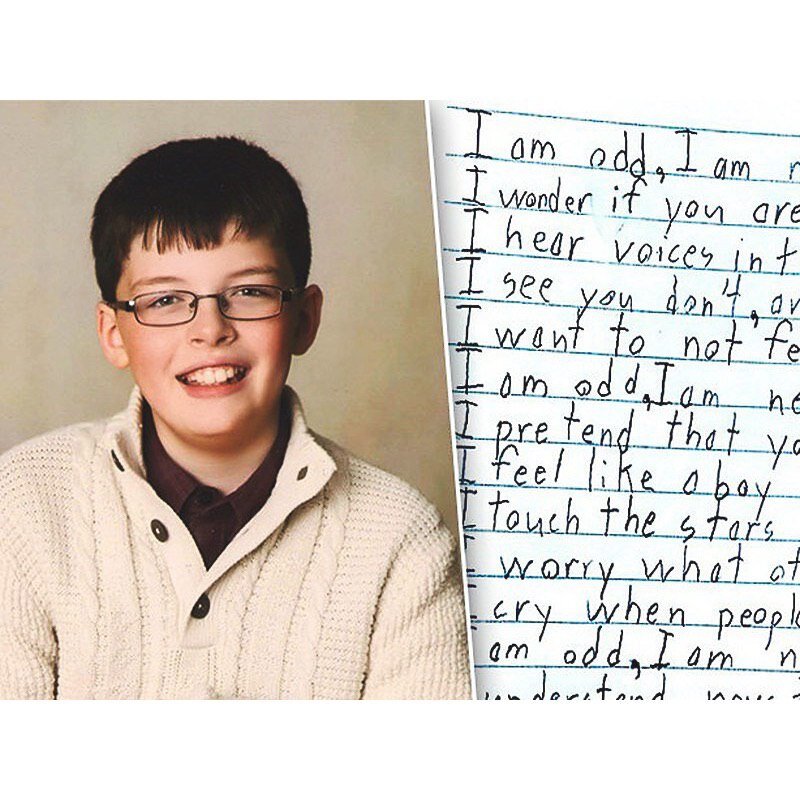 I am odd, I am
I wonder if you are
I hear voices in
I see you don't,
I want to not
I am odd, I am
I pretend that
I feel like a boy
I touch the stars
I worry what
cry when
am odd, I am